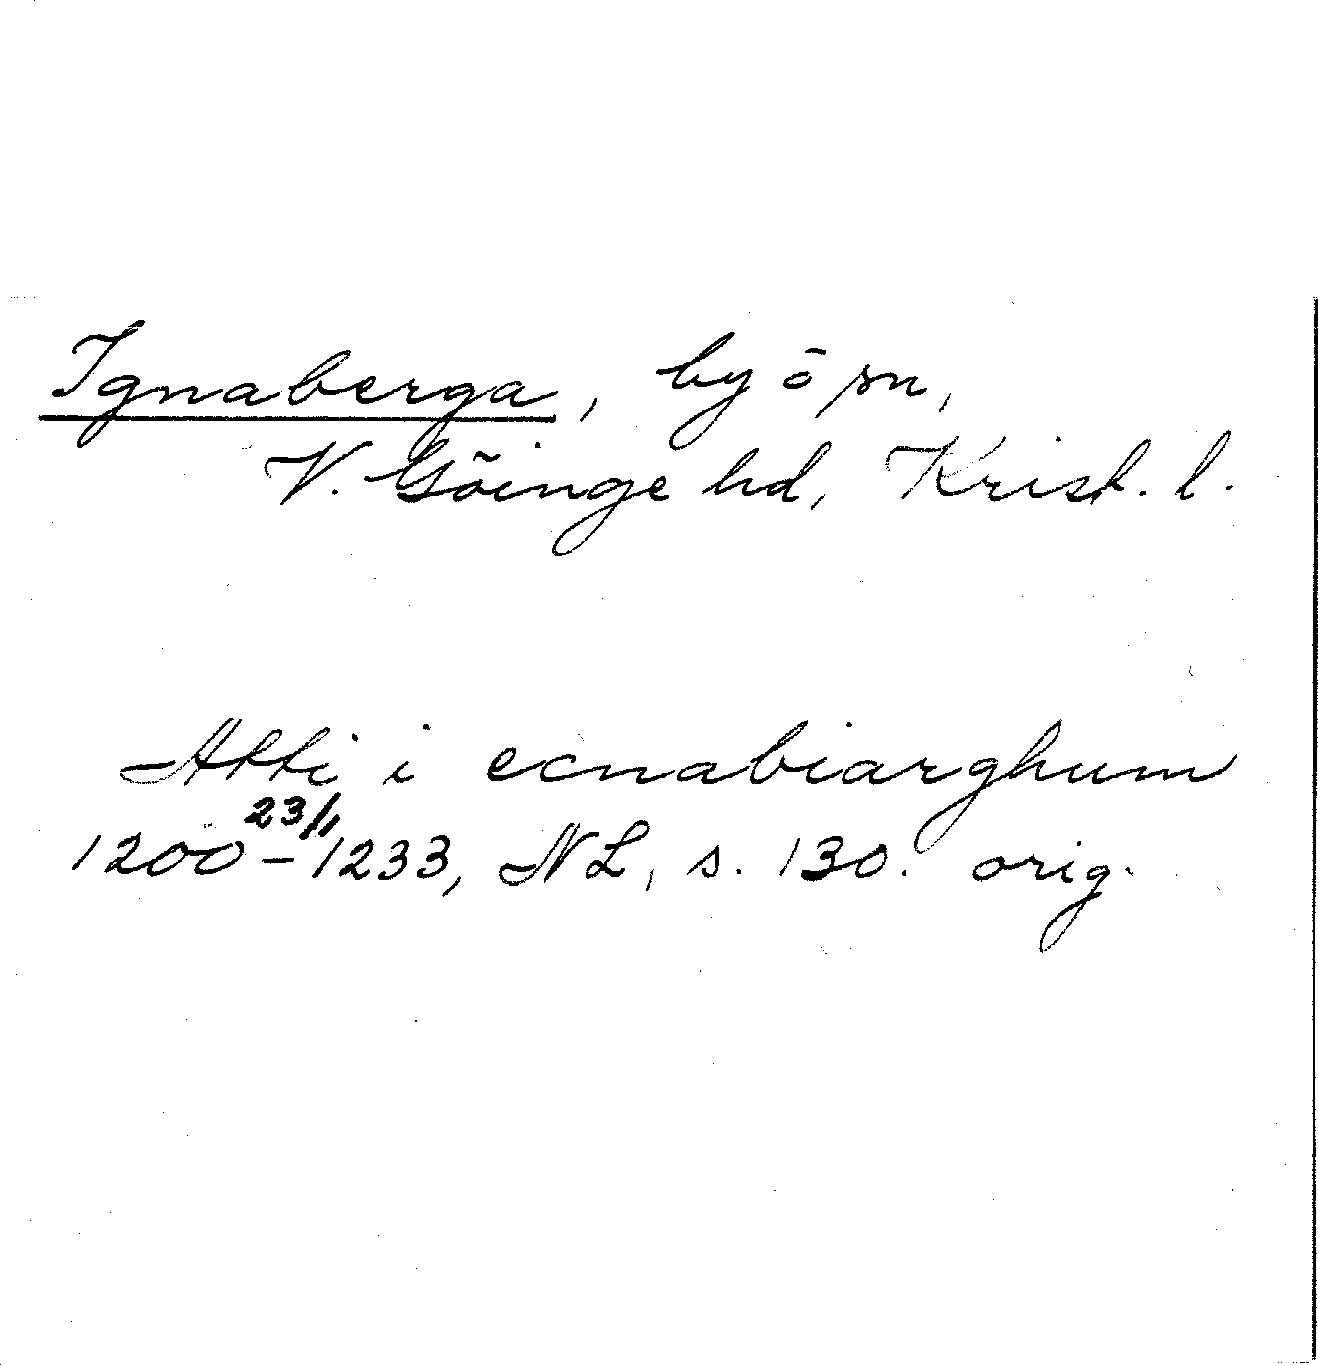 Ignaberga, by ö sn,
V. Göinge hd, Krist. l.
Atti i ecnabiarghum
23/1
1200–1233, NL, s. 130. orig.